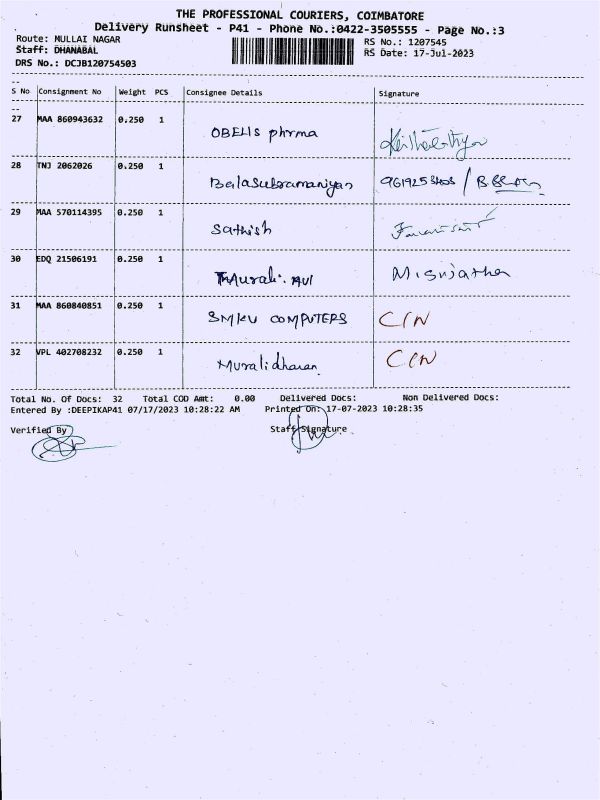 THE PROFESSIONAL COURIERS, COIMBATORE
Delivery Runsheet - P41 - Phone No.:0422-3505555 - Page No.:3
Route: MULLAI NAGAR
RS No.: 1207545
Staff: DHANABAL
RS Date: 17-Jul-2023
DRS No.: DCJB120754503
S No Consignment No Weight PCS Consignee Details Signature
27 MAA 860943632 0.250 1 OBELIS phrma
28 TNJ 2062026 0.250 1 Balasubramaniyan
29 MAA 570114395 0.250 1 Sathish
30 EDQ 21506191 0.250 1 M.Sujatha
31 MAA 860840851 0.250 1 SMKV COMPUTERS C/N
32 VPL 402708232 0.250 1 Muralidharan C/N
Total No. Of Docs: 32 Total COD Amt: 0.00 Delivered Docs: Non Delivered Docs:
Entered By :DEEPIKAP41 07/17/2023 10:28:22 AM Printed On: 17-07-2023 10:28:35
Verified By Staff Signature